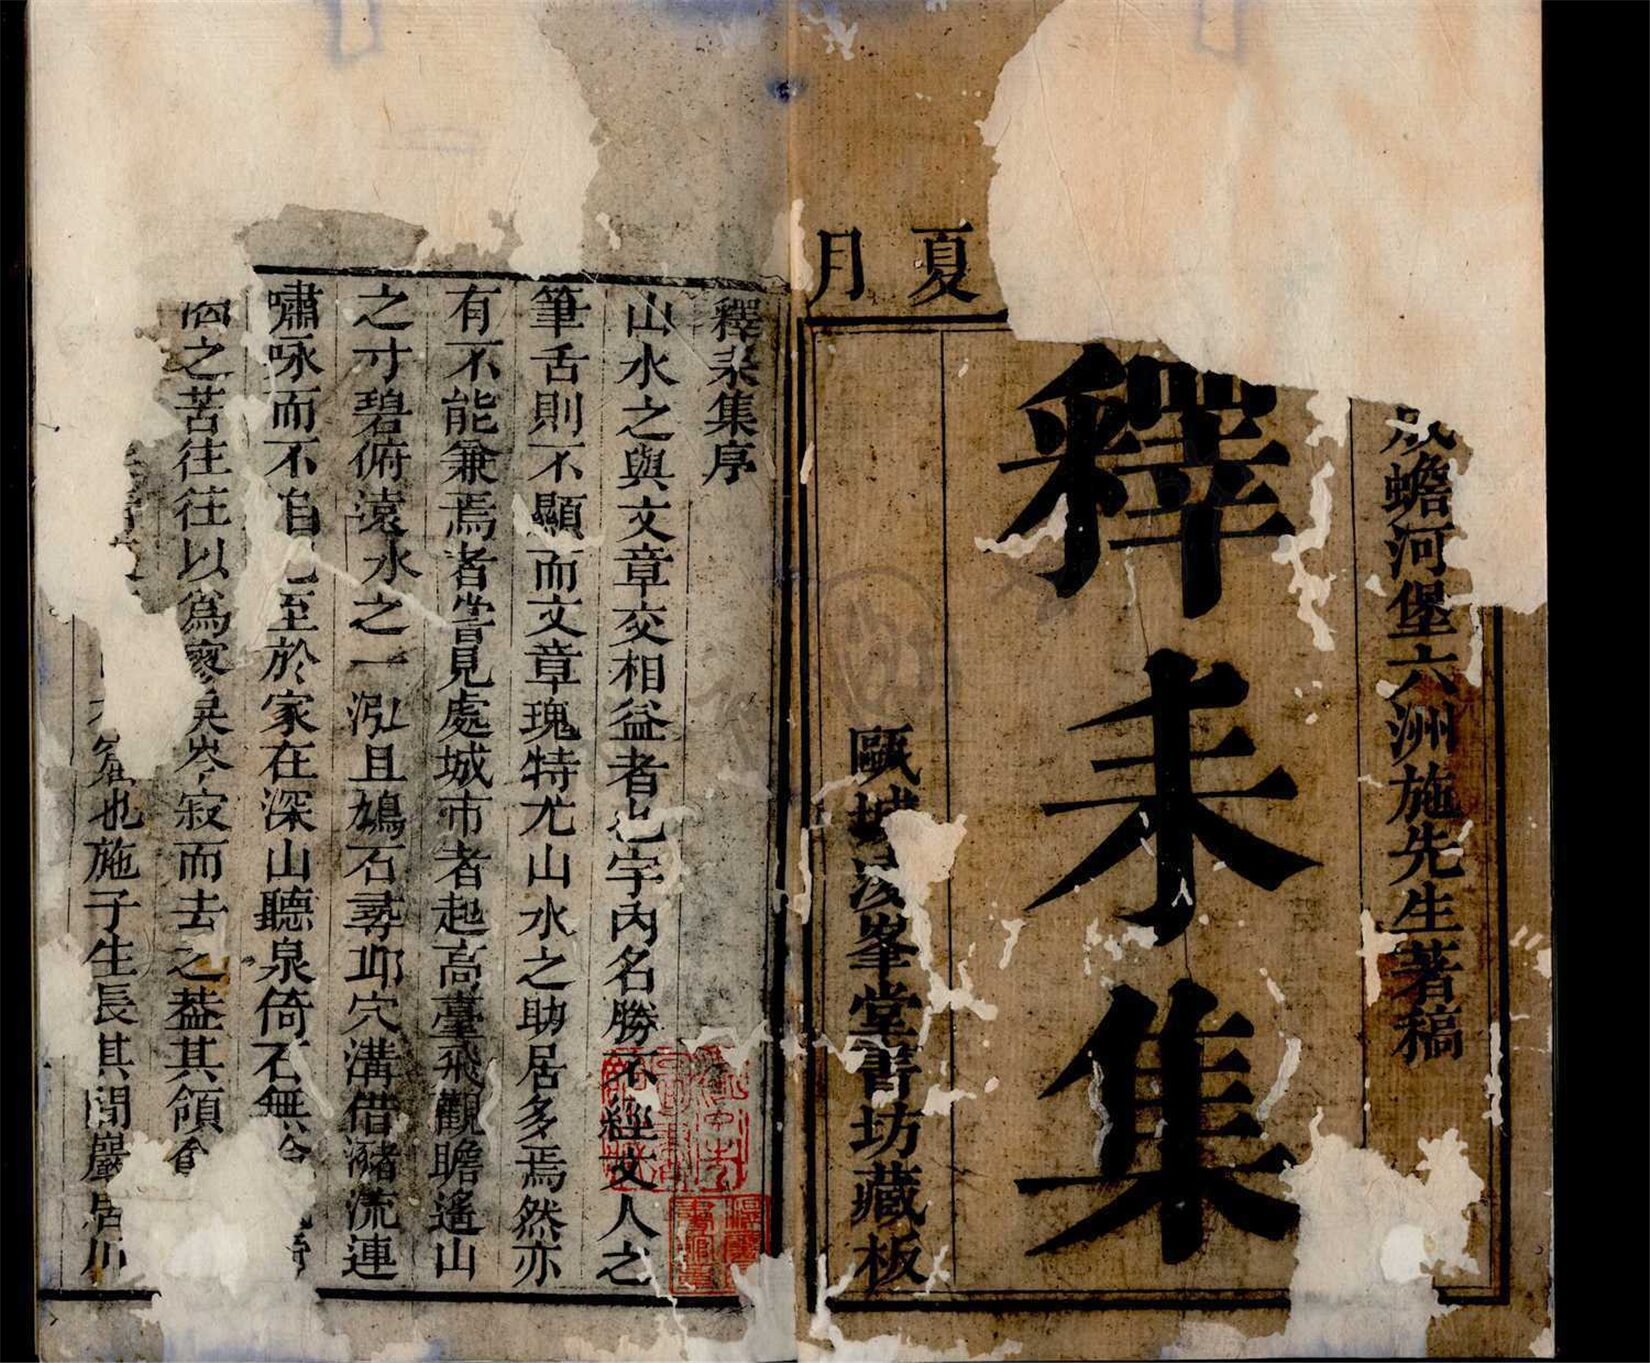 夏月
成蟾河堡六洲施先生著稿
釋耒集
甌城 峯堂書坊藏板
釋耒集序
山水之與文章交相益者也宇內名勝不經文人之
筆舌則不顯而文章瑰特尤山水之助居多焉然亦
有不能兼焉者嘗見處城市者起高臺飛觀瞻遙山
之寸碧俯遠水之一泓且鳩石尋邱穴溝借瀦流連
嘯咏而不自已至於家在深山聽泉倚石無
之苦往往以爲寥 岑寂而去之葢其領
也施子生長其間巖居川